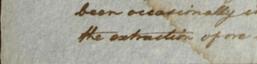 been occasionally
the extraction of ore